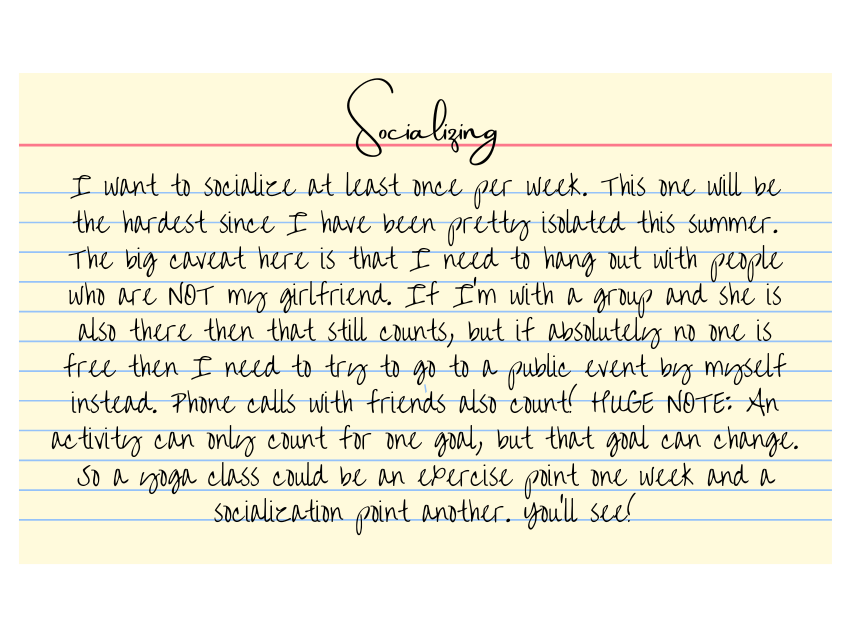 Socializing
I want to socialize at least once per week. This one will be
the hardest since I have been pretty isolated this summer.
The big caveat here is that I need to hang out with people
who are NOT my girlfriend. If I'm with a group and she is
also there then that still counts, but if absolutely no one is
free then I need to try to go to a public event by myself
instead. Phone calls with friends also count! HUGE NOTE: An
activity can only count for one goal, but that goal can change.
So a yoga class could be an exercise point one week and a
socialization point another. You'll see!